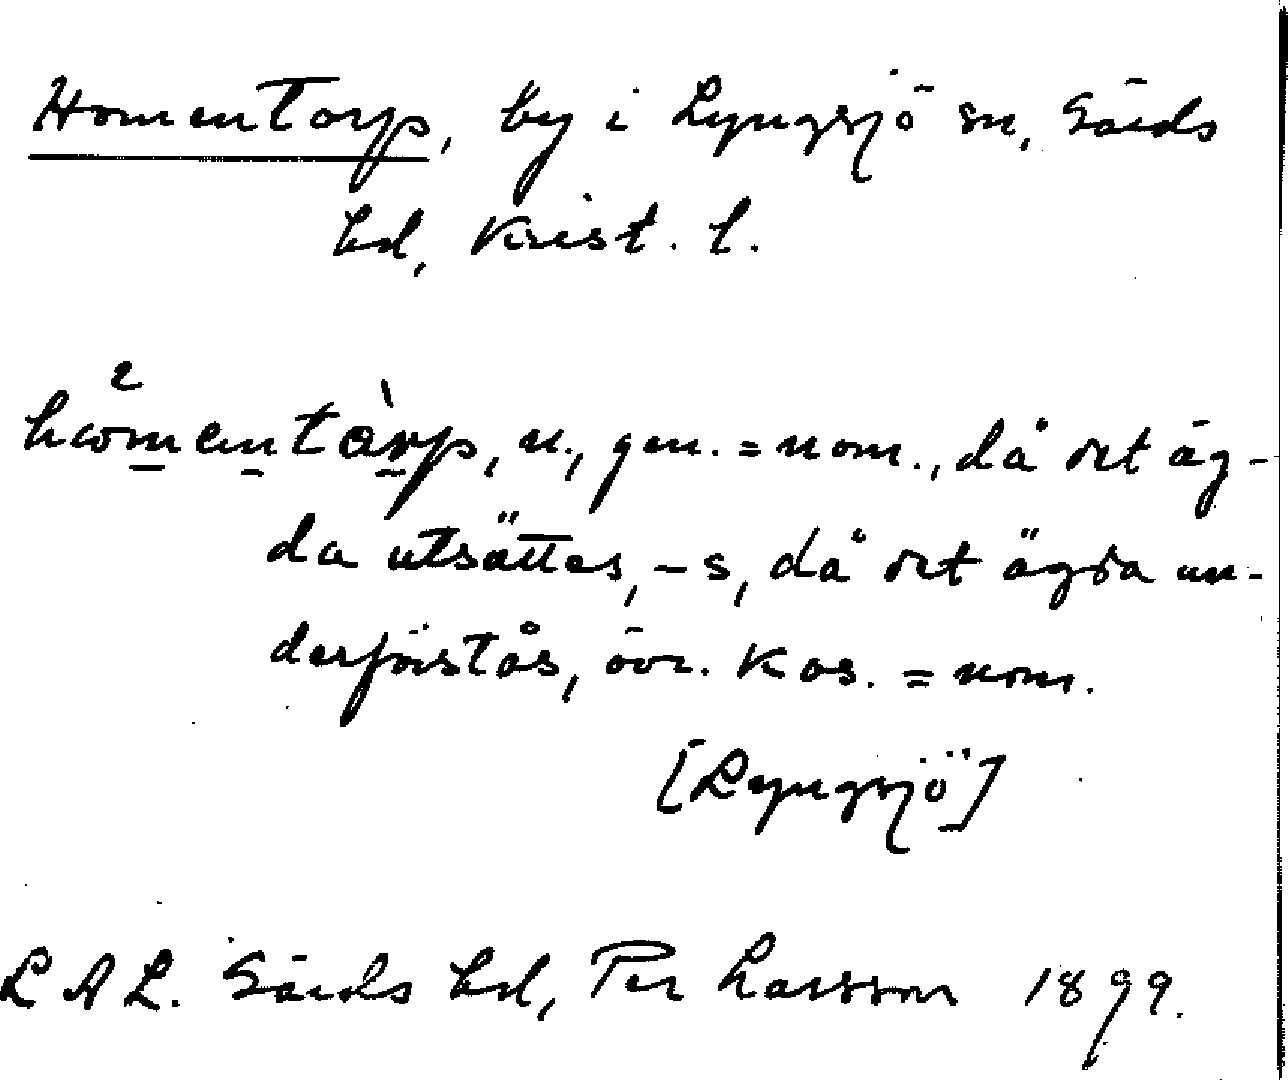 Homentorp, by i Lyngsjö sn, Gärds
hd, Krist. l.
hωmentàrp, n., gen. = nom., då det äg-
da utsättes, -s, då det ägda un-
derförstås, övr. kas. = nom.
[Lyngsjö]
LAL. Gärds hd, Per Larsson 1899.